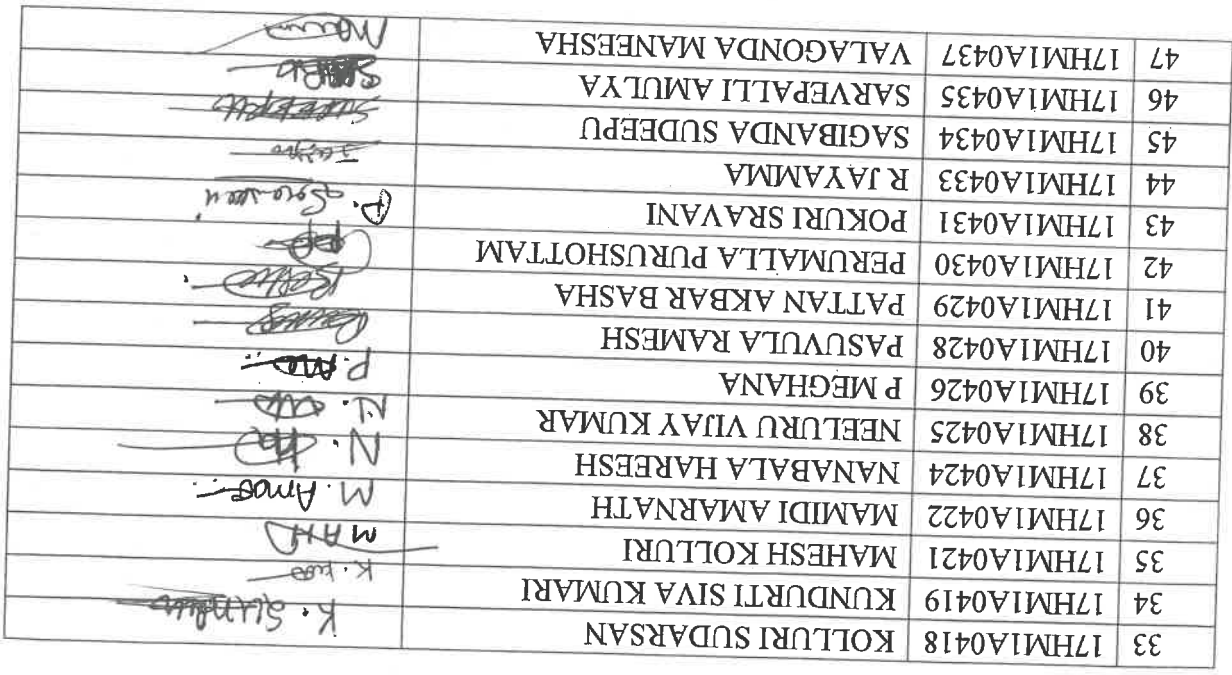 33 17HM1A0418 KOLLURI SUDARSAN
34 17HM1A0419 KUNDURTI SIVA KUMARI
35 17HM1A0421 MAHESH KOLLURI MAH
36 17HM1A0422 MAMIDI AMARNATH M.
37 17HM1A0424 NANABALA HAREESH N.
38 17HM1A0425 NEELURU VIJAY KUMAR N.
39 17HM1A0426 P MEGHANA P.
40 17HM1A0428 PASUVULA RAMESH
41 17HM1A0429 PATTAN AKBAR BASHA
42 17HM1A0430 PERUMALLA PURUSHOTTAM
43 17HM1A0431 POKURI SRAVANI P.
44 17HM1A0433 R JAYAMMA
45 17HM1A0434 SAGIBANDA SUDEEPU
46 17HM1A0435 SARVEPALLI AMULYA
47 17HM1A0437 VALAGONDA MANEESHA